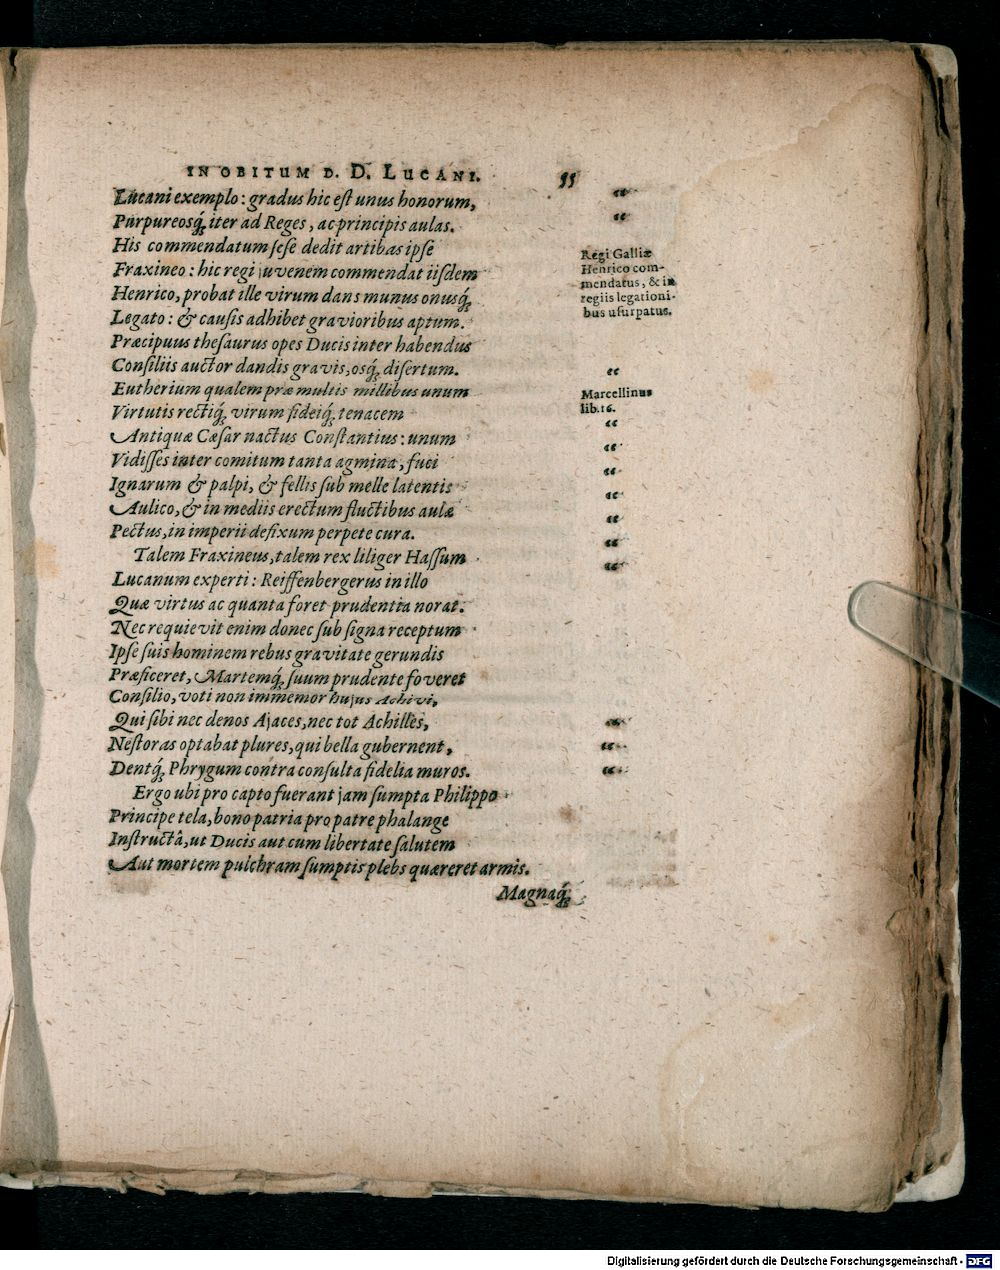 IN OBITUM D. D. LUCANI. 55
Lucani exemplo: gradus hic eſt unus honorum, “
Purpureosq́; iter ad Reges, ac principis aulas. “
His commendatum ſeſe dedit artibas ipſe
Fraxineo: hic regi juvenem commendat iiſdem
Henrico, probat ille virum dans munus onusq́;
Legato: & cauſis adhibet gravioribus aptum.
Regi Galliæ
Henrico com-
mendatus, & in
regiis legationi-
bus uſurpatus.
Præcipuus theſaurus opes Ducis inter habendus
Conſiliis auctor dandis gravis, osq́; diſertum. “
Eutherium qualem præ multis millibus unum
Virtutis rectiq́; virum fideiq́; tenacem
Marcellinus
lib. 16.
“
Antiquæ Cæſar nactus Conſtantius: unum “
Vidiſſes inter comitum tanta agmina, fuci “
Ignarum & palpi, & fellis ſub melle latentis “
Aulico, & in mediis erectum fluctibus aulæ “
Pectus, in imperii defixum perpete cura. “
Talem Fraxineus, talem rex liliger Haſſum “
Lucanum experti: Reiffenbergerus in illo
Quæ virtus ac quanta foret prudentia norat.
Nec requievit enim donec ſub ſigna receptum
Ipſe ſuis hominem rebus gravitate gerundis
Præficeret, Martemq́; ſuum prudente foveret
Conſilio, voti non immemor hujus Achivi,
Qui ſibi nec denos Ajaces, nec tot Achilles, “
Neſtoras optabat plures, qui bella gubernent, “
Dentq́; Phrygum contra conſulta fidelia muros. “
Ergo ubi pro capto fuerant jam ſumpta Philippo
Principe tela, bono patria pro patre phalange
Inſtructâ, ut Ducis aut cum libertate ſalutem
Aut mortem pulchram ſumptis plebs quæreret armis.
Magnaq́;
Digitalisierung gefördert durch die Deutsche Forschungsgemeinschaft - DFG